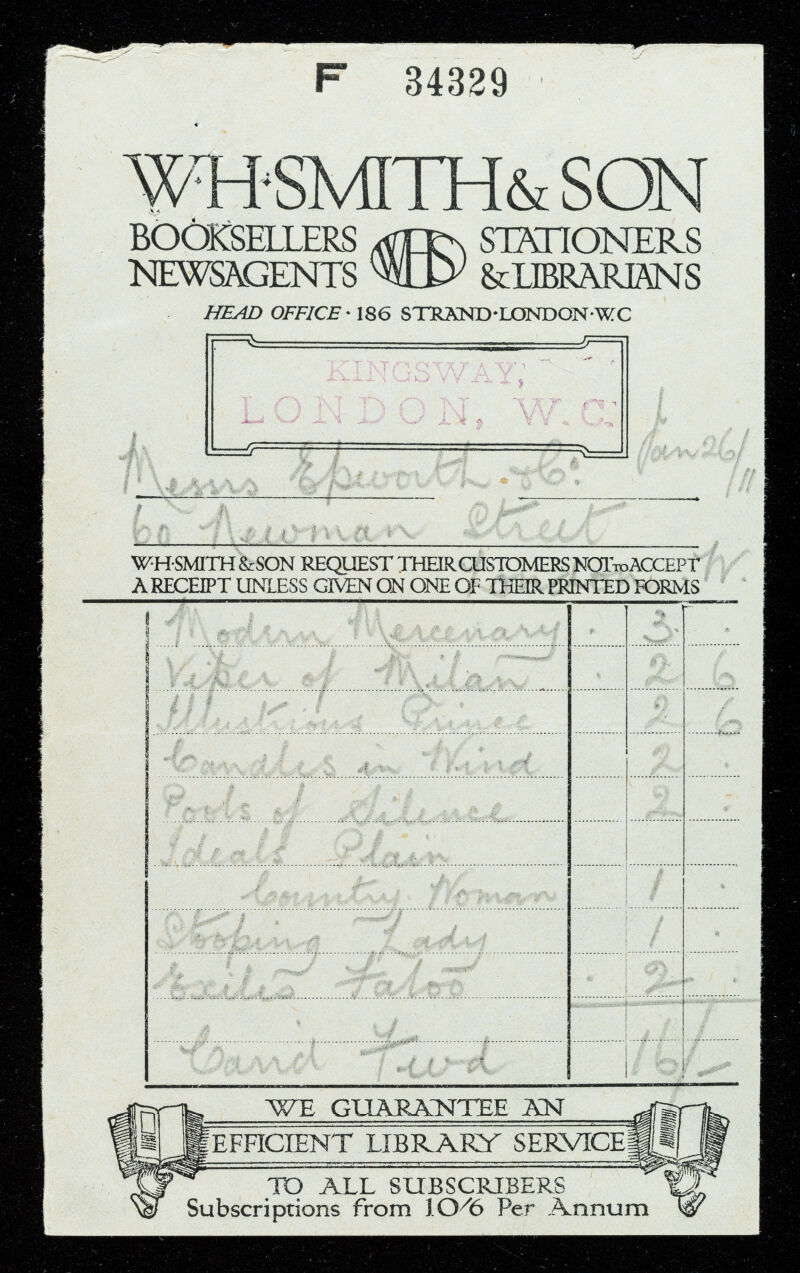 F 34329
W·H·SMITH & SON
BOOKSELLERS WHS STATIONERS
NEWSAGENTS & LIBRARIANS
HEAD OFFICE · 186 STRAND·LONDON·W.C
KINGSWAY,
LONDON, W.C.
Messrs Epworth & Co. Jan 26/11
60 Newman Street
London W.
W·H·SMITH & SON REQUEST THEIR CUSTOMERS NOT TO ACCEPT
A RECEIPT UNLESS GIVEN ON ONE OF THEIR PRINTED FORMS
Modern Mercenary . 3 .
Viper of Milan . 2 6
Illustrious Prince 2 6
Candles in Wind 2 .
Pools of Silence 2 .
Ideals Plain
Country Woman 1 .
Stooping Lady 1 .
Exiles Faloo . 2 .
Carrid Fwd 16/-
WE GUARANTEE AN
EFFICIENT LIBRARY SERVICE
TO ALL SUBSCRIBERS
Subscriptions from 10/6 Per Annum